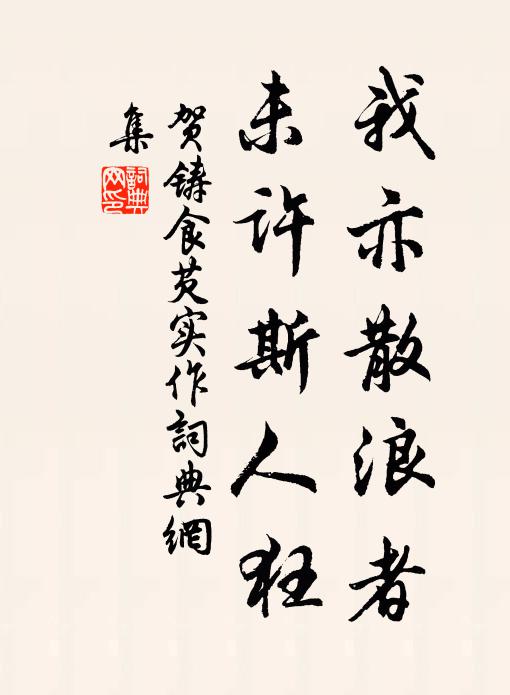 我亦散浪者
未许斯人狂
贺铸食芡实作詞典網
集
詞典網印